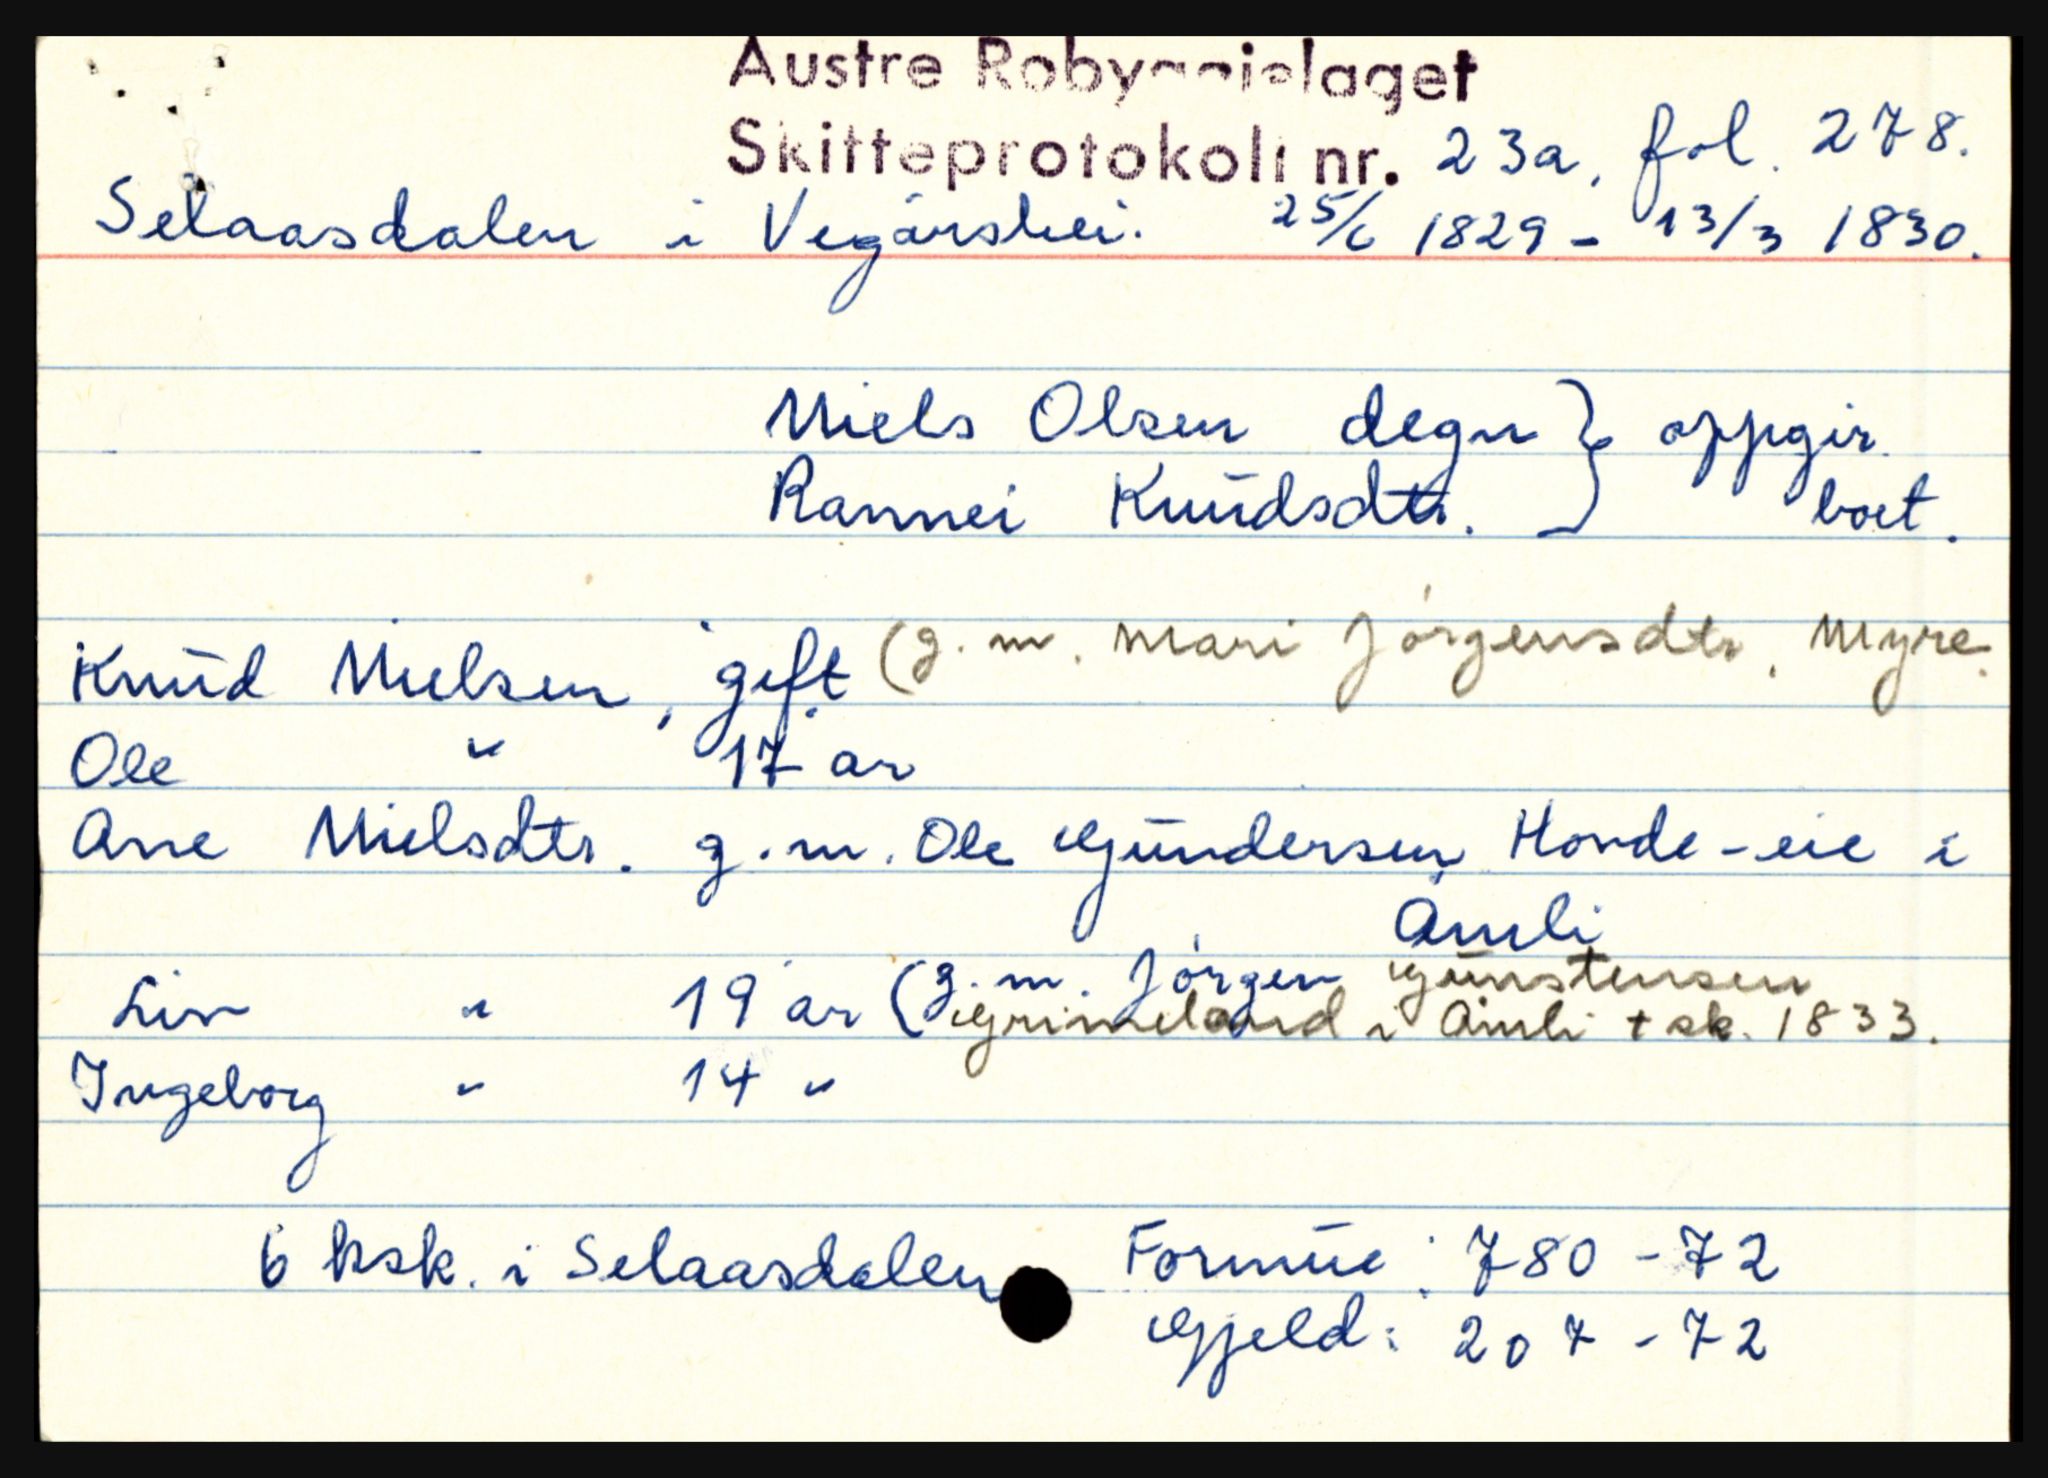 Austre Robyggjelaget
Skifteprotokoll nr. 23a, fol. 278.
Selaasdalen i Vegårshei. 25/6 1829 - 13/3 1830.
Niels Olsen degn } oppgir
Rannei Knudsdtr. } boet.
Knud Nielsen, gift (g. m. Mari Jörgensdtr, Myre.
Ole " 17 år
Ane Nielsdtr. g. m. Ole Gundersen Hovde-eie i
Åmli
Liv " 19 år (g. m. Jörgen Gunstensen
Grimeland i Åmli + sk. 1833.
Ingeborg " 14 "
6 ksk. i Selaasdalen Formue: 780 - 72
Gjeld: 207 - 72